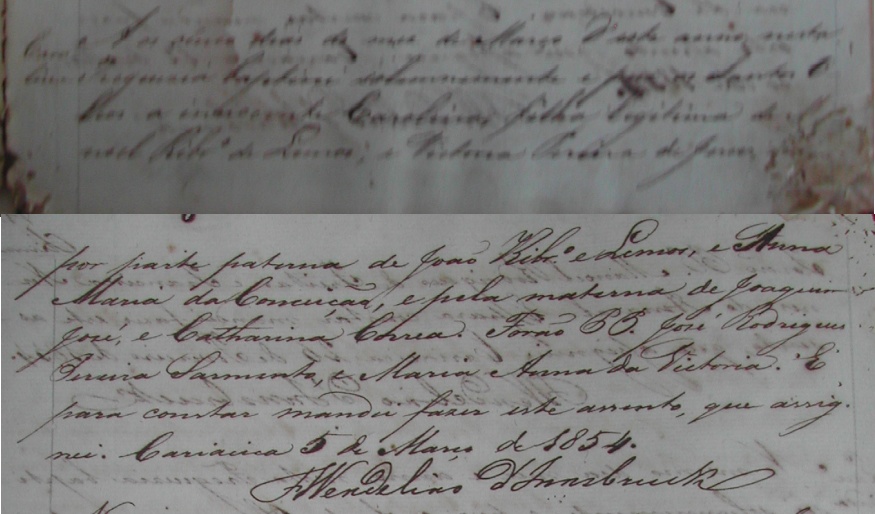 Caro Aos cinco dias do mes de Março d'este anno nesta
lina Freguezia baptizei solemnemente e puz os Santos O
leos a innocente Carolina, filha legitima de M
noel Rib.º de Lemos, e Victoria Pereira de Jesus
por parte paterna de João Rib.º e Lemos, e Anna
Maria da Conceição, e pela materna de Joaquim
José, e Catharina Correa. Forão PP. José Rodrigues
Pereira Sarmento, e Maria Anna da Victoria. E
para constar mandei fazer este assento, que assig-
nei. Cariacica 5 de Março de 1854.
Fr Wendelino d'Innsbruck